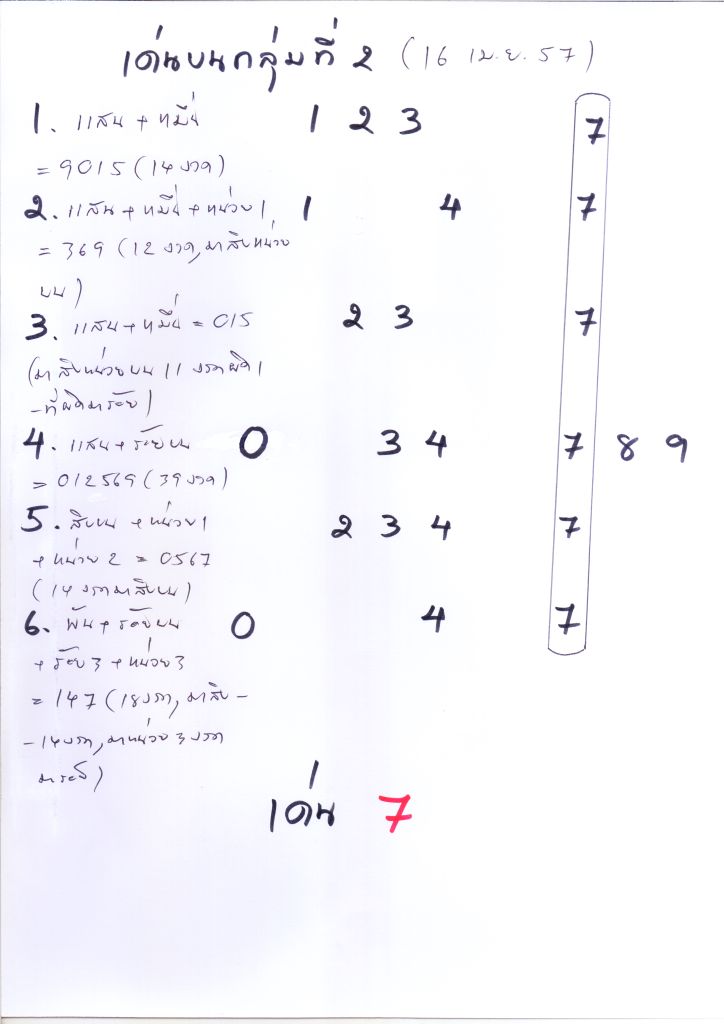 เด่นบนกลุ่มที่ 2 (16 เม.ย. 57)
1. แสน + หมื่น 1 2 3 7
= 9015 (14 งวด)
2. แสน + หมื่น + หน่วย 1 1 4 7
= 369 (12 งวด, มาสิบหน่วย
บน)
3. แสน + หมื่น = 015 2 3 7
(มาสิบหน่วยบน 11 งวดผิด 1
- ที่ผิดมาร้อย)
4. แสน + ร้อยบน 0 3 4 7 8 9
= 012569 (39 งวด)
5. สิบบน + หน่วย 1 2 3 4 7
+ หน่วย 2 = 0567
(14 งวดมาสิบบน)
6. พัน + ร้อยบน 0 4 7
+ ร้อย 3 + หน่วย 3
= 147 (18 งวด, มาสิบ -
- 14 งวด, มาหน่วย 3 งวด
เด่น 7